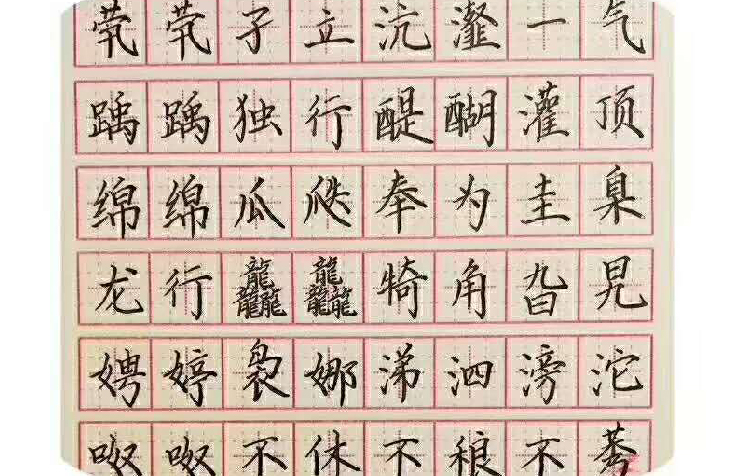 茕茕孑立沆瀣一气
踽踽独行醍醐灌顶
绵绵瓜瓞奉为圭臬
龙行龘龘犄角旮旯
娉婷袅娜涕泗滂沱
呶呶不休不稂不莠